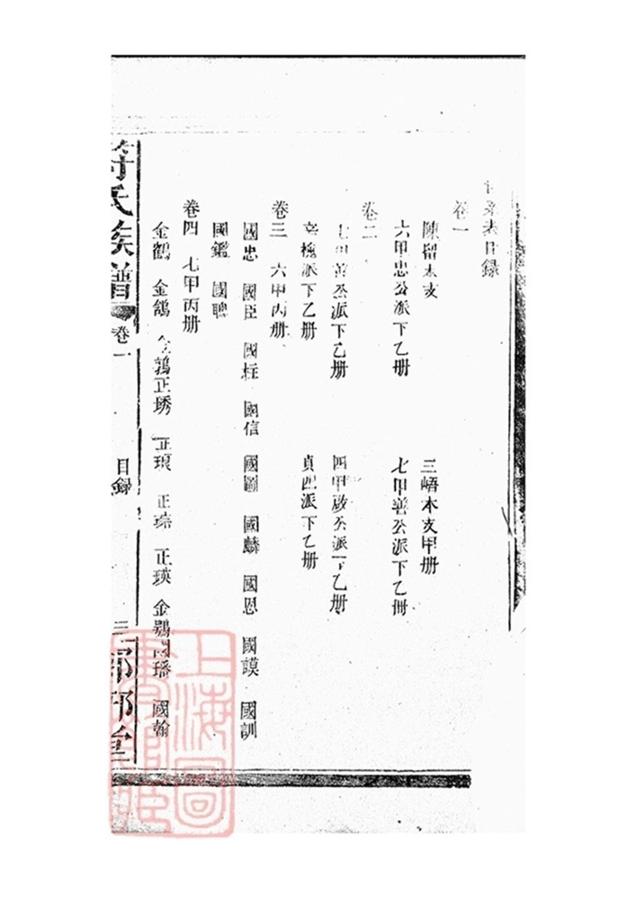 世系表目錄
卷一
陳留本支 三峿本支甲册
六甲忠公派下乙册 七甲善公派下乙册
卷二
七甲善公派下乙册 四甲啟公派下乙册
派下乙册 貞四派下乙册
卷三 六甲丙册
國忠 國臣 國柱 國信 國圖 國麟 國恩 國謨 國訓
國鑑 國聘
卷四 七甲丙册
金鶴 金鵠 金鶉 正琇 正琅 正琮 正瑛 金鶚 國璠 國翰
符氏族譜 卷一 目錄 三 琅琊堂
上海圖書館藏